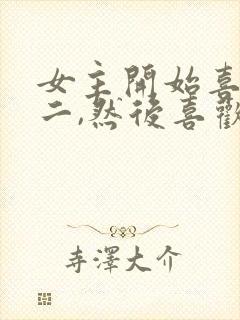 女主開始喜
二,然後喜歡
寺澤大介